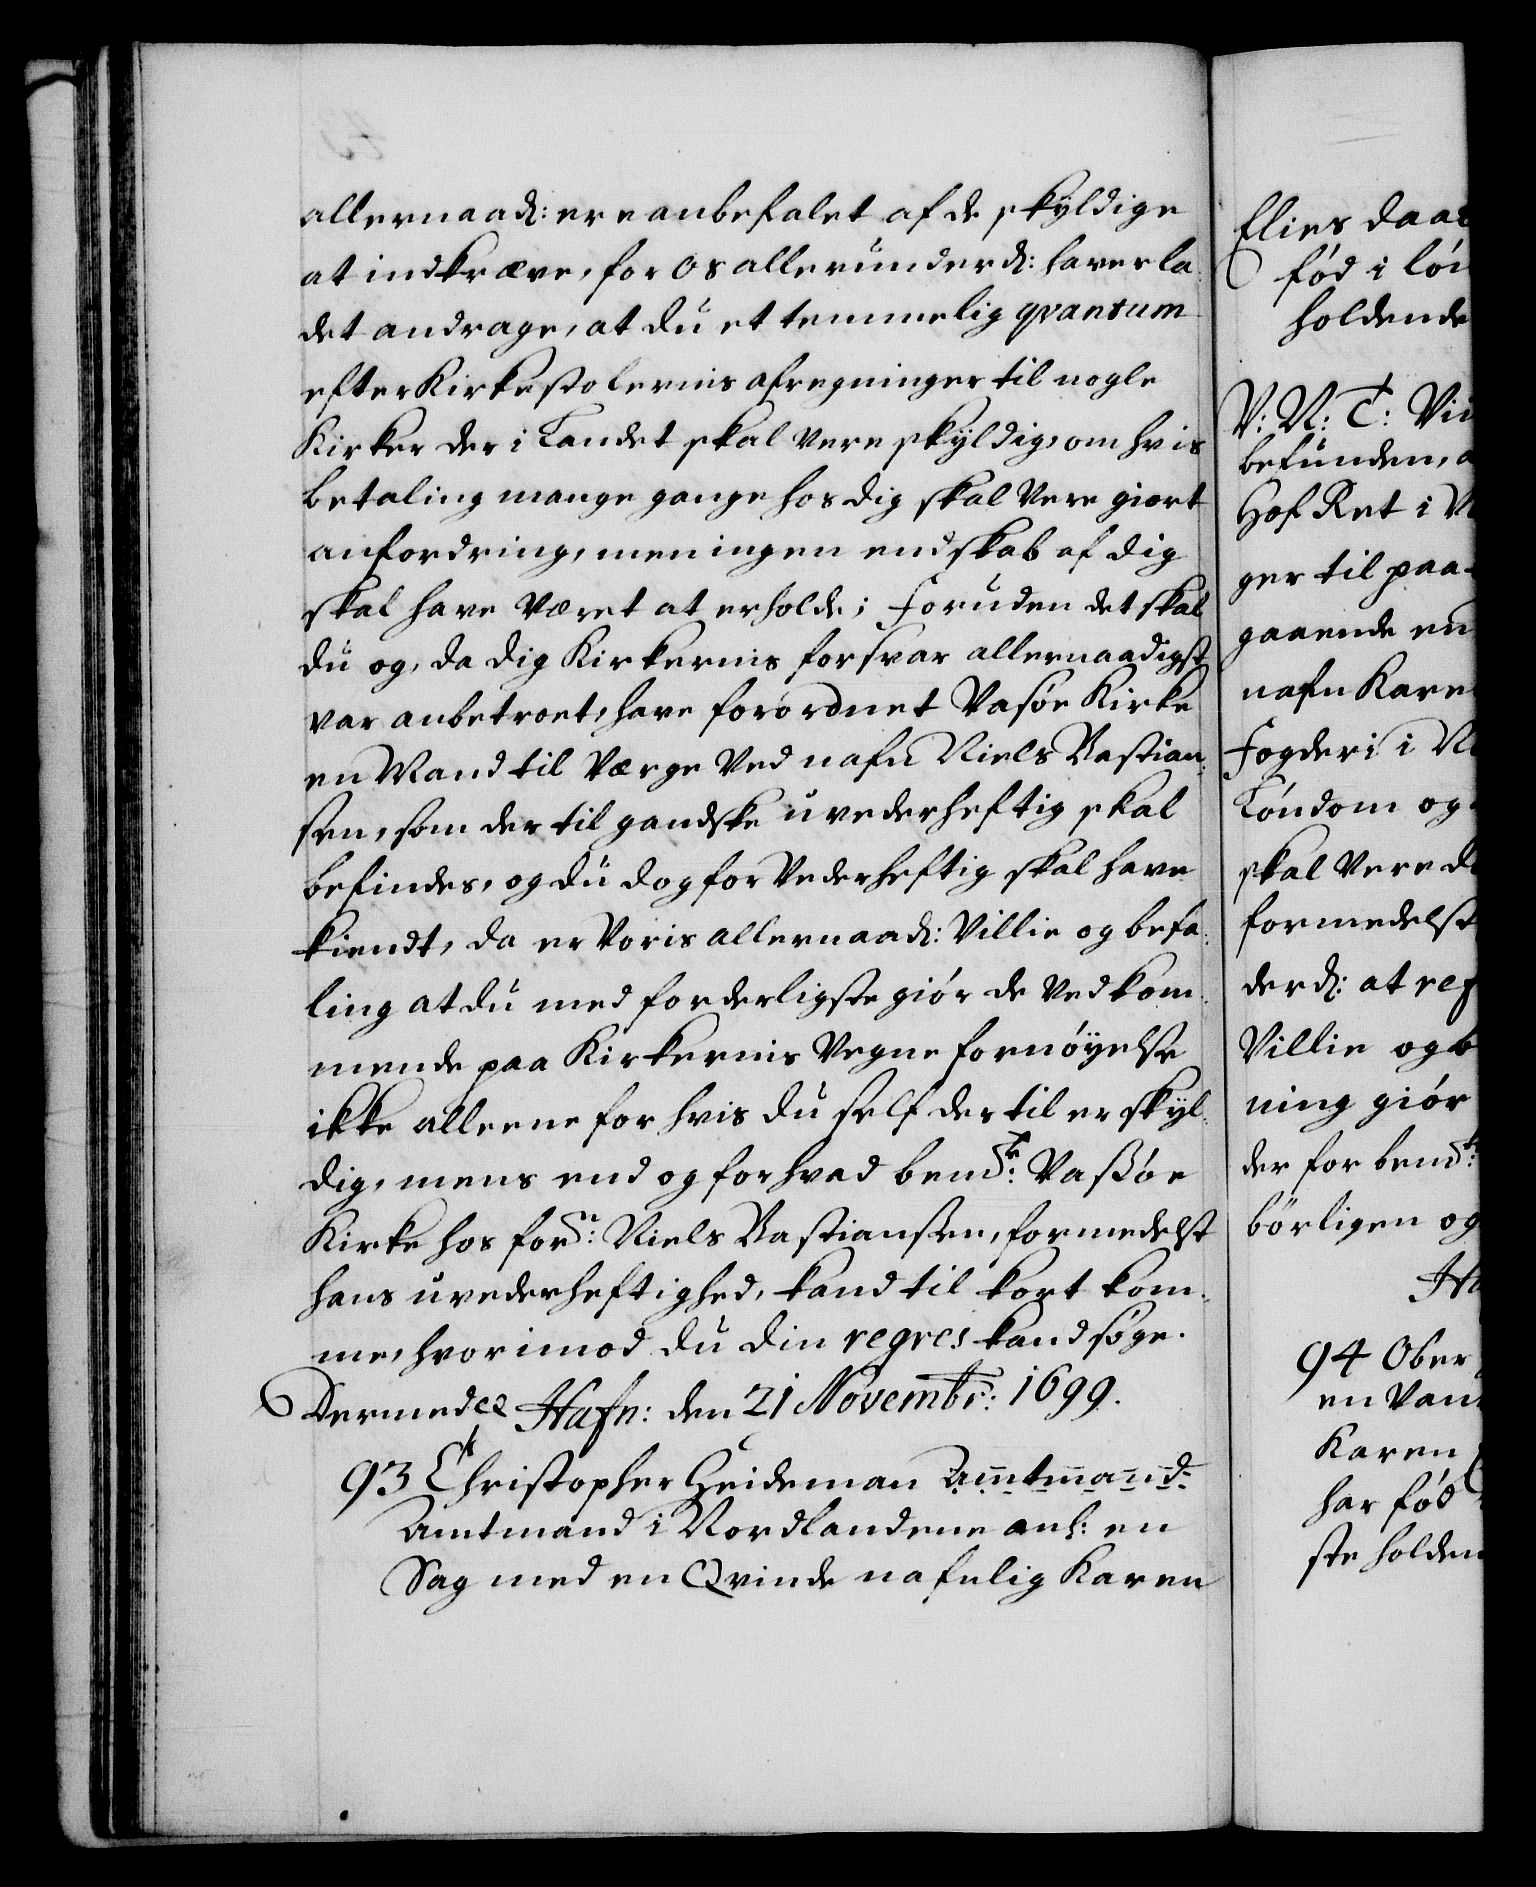 allernaad: ere anbefalet af de skyldige
at indkræve, for os allerunderd: haver la
det andrage, at du et temmelig qvantum
efter Kirkestolernis afregninger til nogle
Kirker der i Landet skal vere skyldig, om hvis
betaling mange gange hos dig skal vere giort
anfordring, men ingen endskab af dig
skal have været at erholde; Foruden det skal
du og, da dig Kirkernis forsvar allernaadigst
var anbetroet, have forordnet Vasøe Kirke
en Mand til Værge ved nafn Niels Bastian
sen, som der til gandske uvederheftig skal
befindes, og du dog for Vederheftig skal have
kiendt, da er Voris allernaad: Villie og befa
ling at du med forderligste giór de vedkom
mende paa Kirkernis Vegne fornóyelse
ikke alleene for hvis du self der til er skyl
dig, mens end og for hvad bemte: Vassóe
Kirke hos forn: Niels Bastiansen, formedelst
hans uvederheftighed, kand til kort kom
me, hvorimod du din regres kand sóge.
Dermed ce Hafn: den 21 Novembr: 1699.
93 Christopher Heideman Amtmand
Amtmand i Nordlandene anl: en
Sag med en Qvinde nafnlig Karen
Elies daa
fód i lón
holdende
V: N: T: Vii
befunden, a
Hof Ret i N
ger til paa
gaaende en
nafn Kare
Fogderi i N
Lóndom og
skal vere d
formedelst
derd: at ref
Villie og b
ning giór
der for bemte:
bórligen og
Ha
94 Ober
en Van
Karen
har fód
ste holden